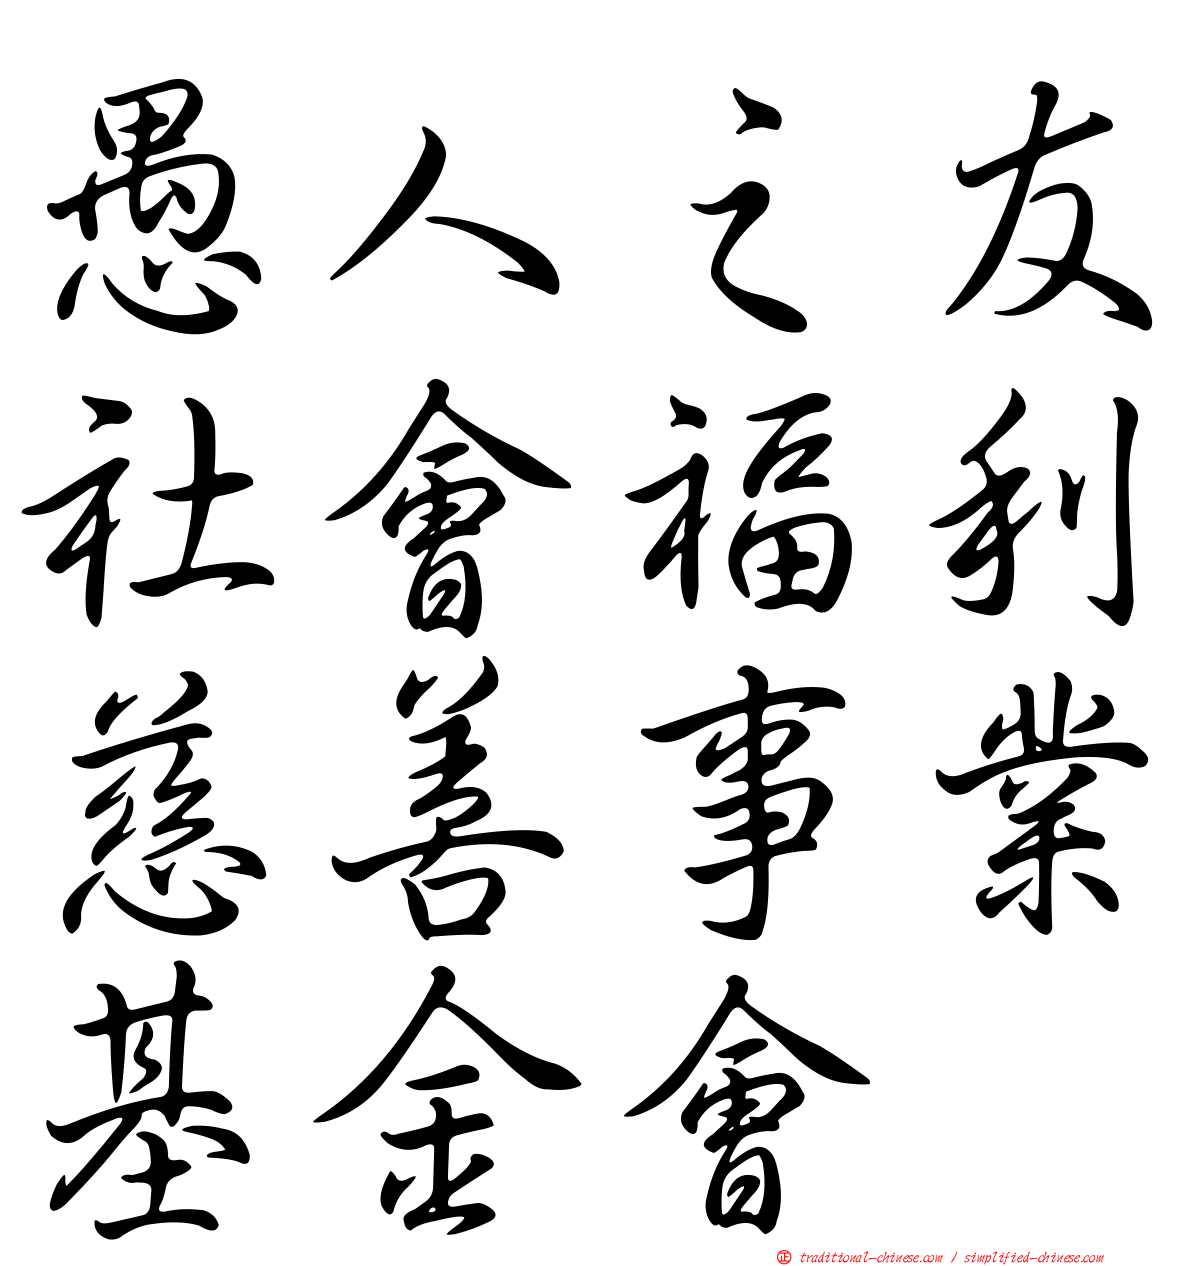 愚人之友
社會福利
慈善事業
基金會
正 traditional-chinese.com / simplified-chinese.com